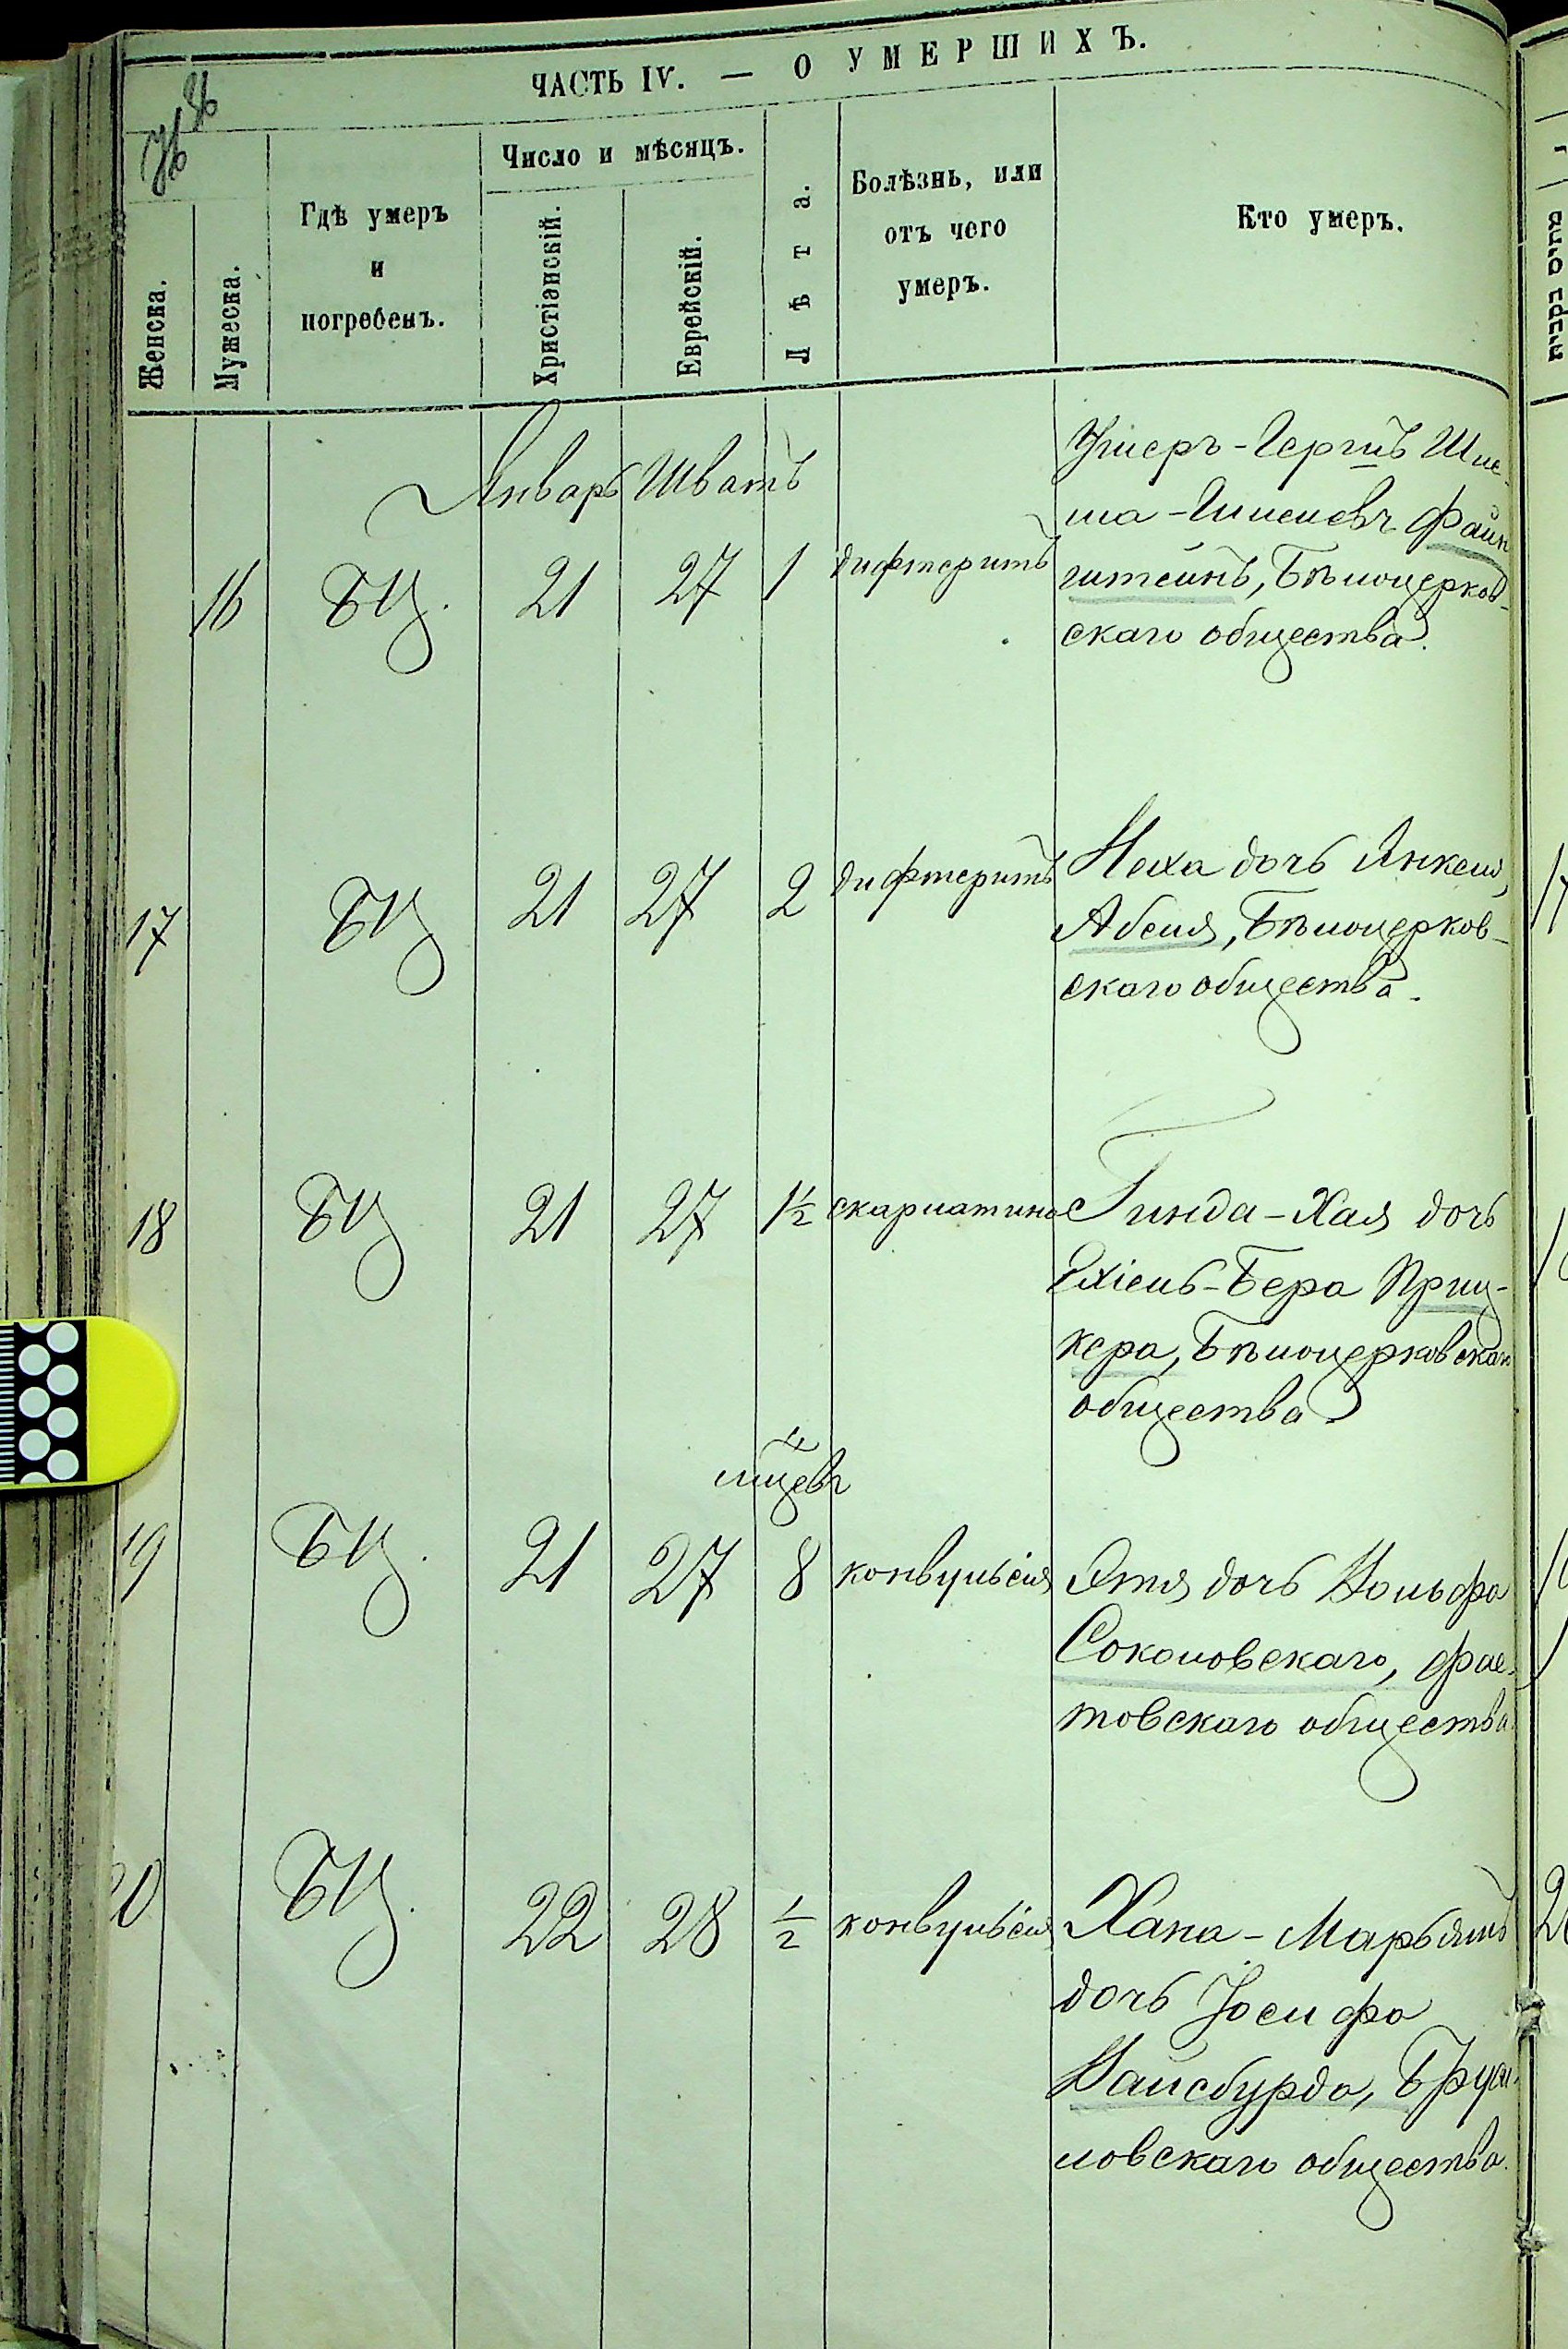 ЧАСТЬ IV. — О УМЕРШИХЪ.
№ №
Женска.
Мужеска.
Гдѣ умеръ
и
погребенъ.
Число и мѣсяцъ.
Христіанскій.
Еврейскій.
Лѣта.
Болѣзнь, или
отъ чего
умеръ.
Кто умеръ.
Январь Шватъ
16 БЦ. 21 27 1 дифтеритъ
Ушеръ-Герш
ма- Файн
штейнъ, Бѣлоцерков-
скаго общества.
17 БЦ 21 27 2 дифтеритъ Неха дочь Янкеля
Абеля, Бѣлоцерков-
скаго общества.
18 БЦ 21 27 1½ скарлатина Гинда-Хая дочь
Ехіель-Бера Приц-
кера, Бѣлоцерковскаго
общества
мѣцевъ
19 БЦ. 21 27 8 конвульсія Этля дочь Вольфа
Соколовскаго, Фас-
товскаго общества
20 БЦ. 22 28 ½ конвульсія Хана-Марьямъ
дочь Іосифа
Вайсбурда, Бруси-
ловскаго общества.